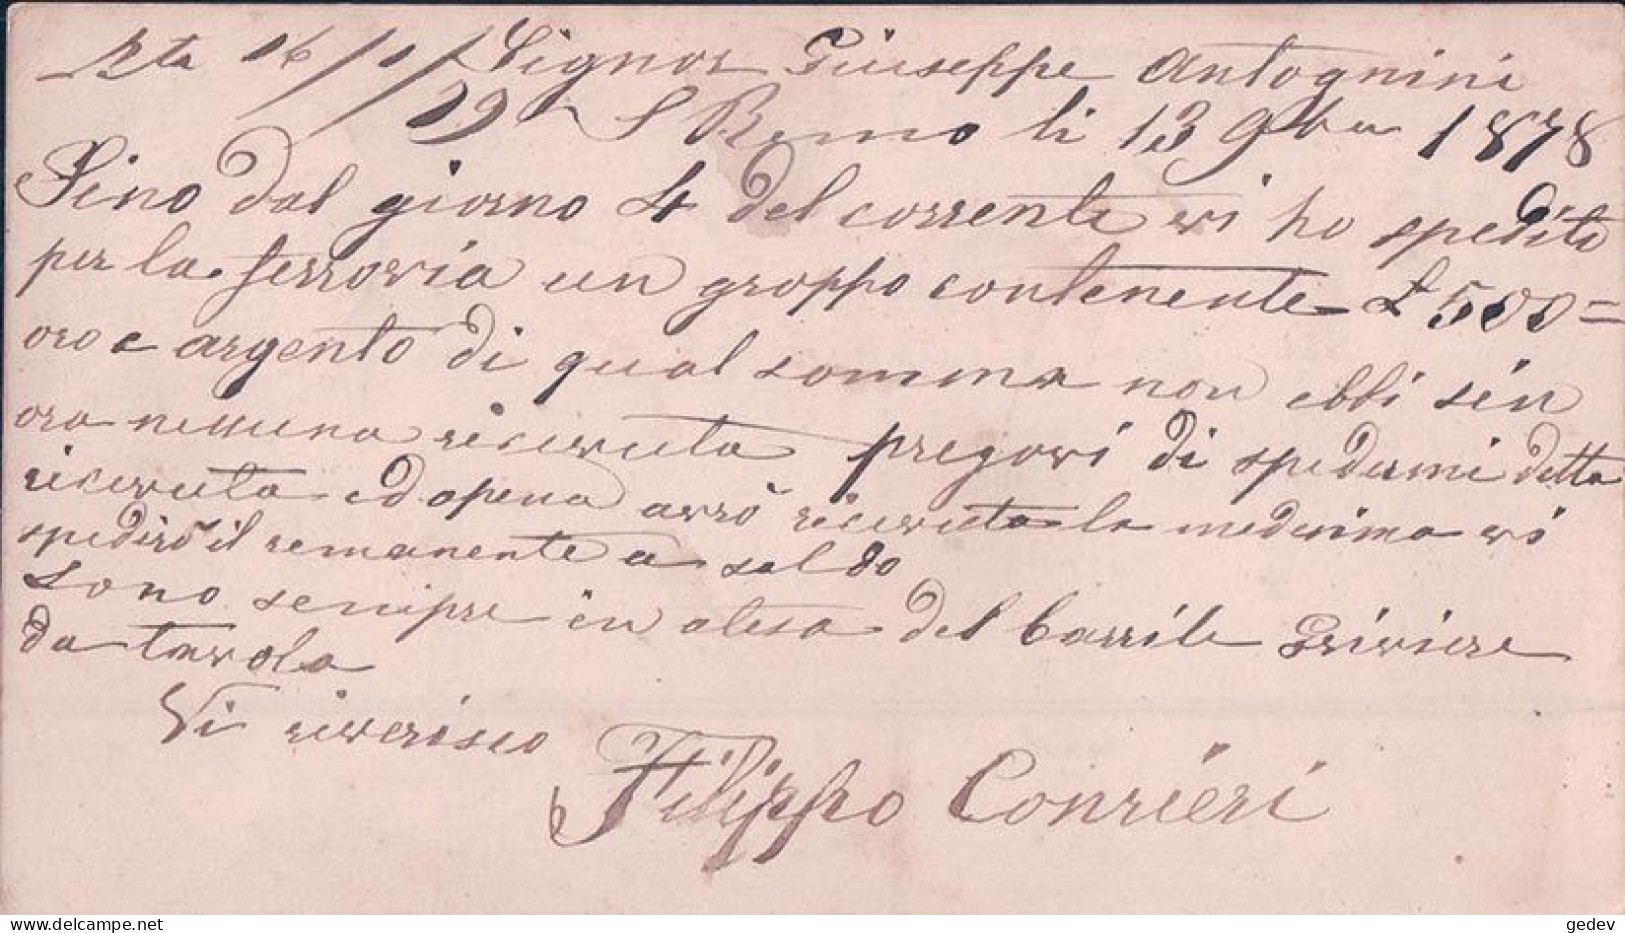 Rta 16/1/79 Signor Giuseppe Antognini
S Remo li 13 9bre 1878
Sino dal giorno 4 del corrente vi ho spedito
per la ferrovia un groppo contenente £ 500=
oro e argento di qual somma non ebbi sin
ora nessuna riceruta pregovi di spedermi detta
riceruta ed apena avrò riceruta la medesima vi
spedirò il remanente a saldo
sono sempre in atesa del barrile
da tavola
Vi riverisco
Filippo Conrieri
gedev